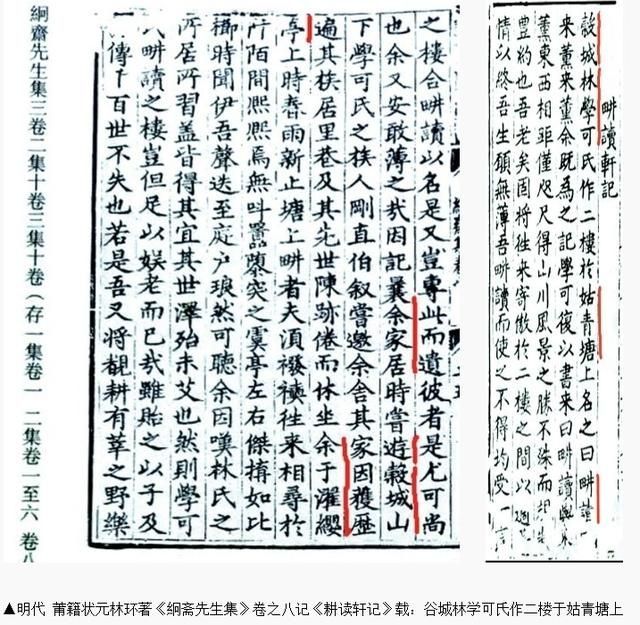 畊讀軒記
穀城林學可氏作二樓於姑青塘上名之曰畊讀
来薰来薰余既為之記學可復以書来曰畊讀與来
薰東西相距僅咫尺得山川風景之勝不殊而
豊約也吾老矣固将徃来寄傲於二樓之間以
情以終吾生願無薄吾畊讀而使之不得均受一言
之樓合畊讀以名是又豈專此而遺彼者是尤可尚
也余又安敢薄之㢤因記曩余家居時嘗遊穀城山
下學可氏之族人剛直伯叙嘗邀余舍其家因獲歴
遍其族居里巷及其先世陳跡倦而休坐余于濯纓
亭上時春雨新止塘上畊者夫須襏襫徃来相尋於
阡陌間熙熙焉無叫囂隳突之虞亭左右傑搆如比
櫛時聞伊吾聲迭至庭户琅然可聽余因嘆林氏之
所居所習蓋皆得其宜其世澤殆未艾也然則學可
氏畊讀之樓豈但足以娱老而已㢤雖貽之以子及
傳千百世不失也若是吾又将覩耕有莘之野樂
絅齋先生集三卷二集十卷三集十卷(存一集卷一 二集卷一至六 卷八
▲明代 莆籍状元林环著《絅斋先生集》卷之八记《耕读轩记》载：谷城林学可氏作二楼于姑青塘上